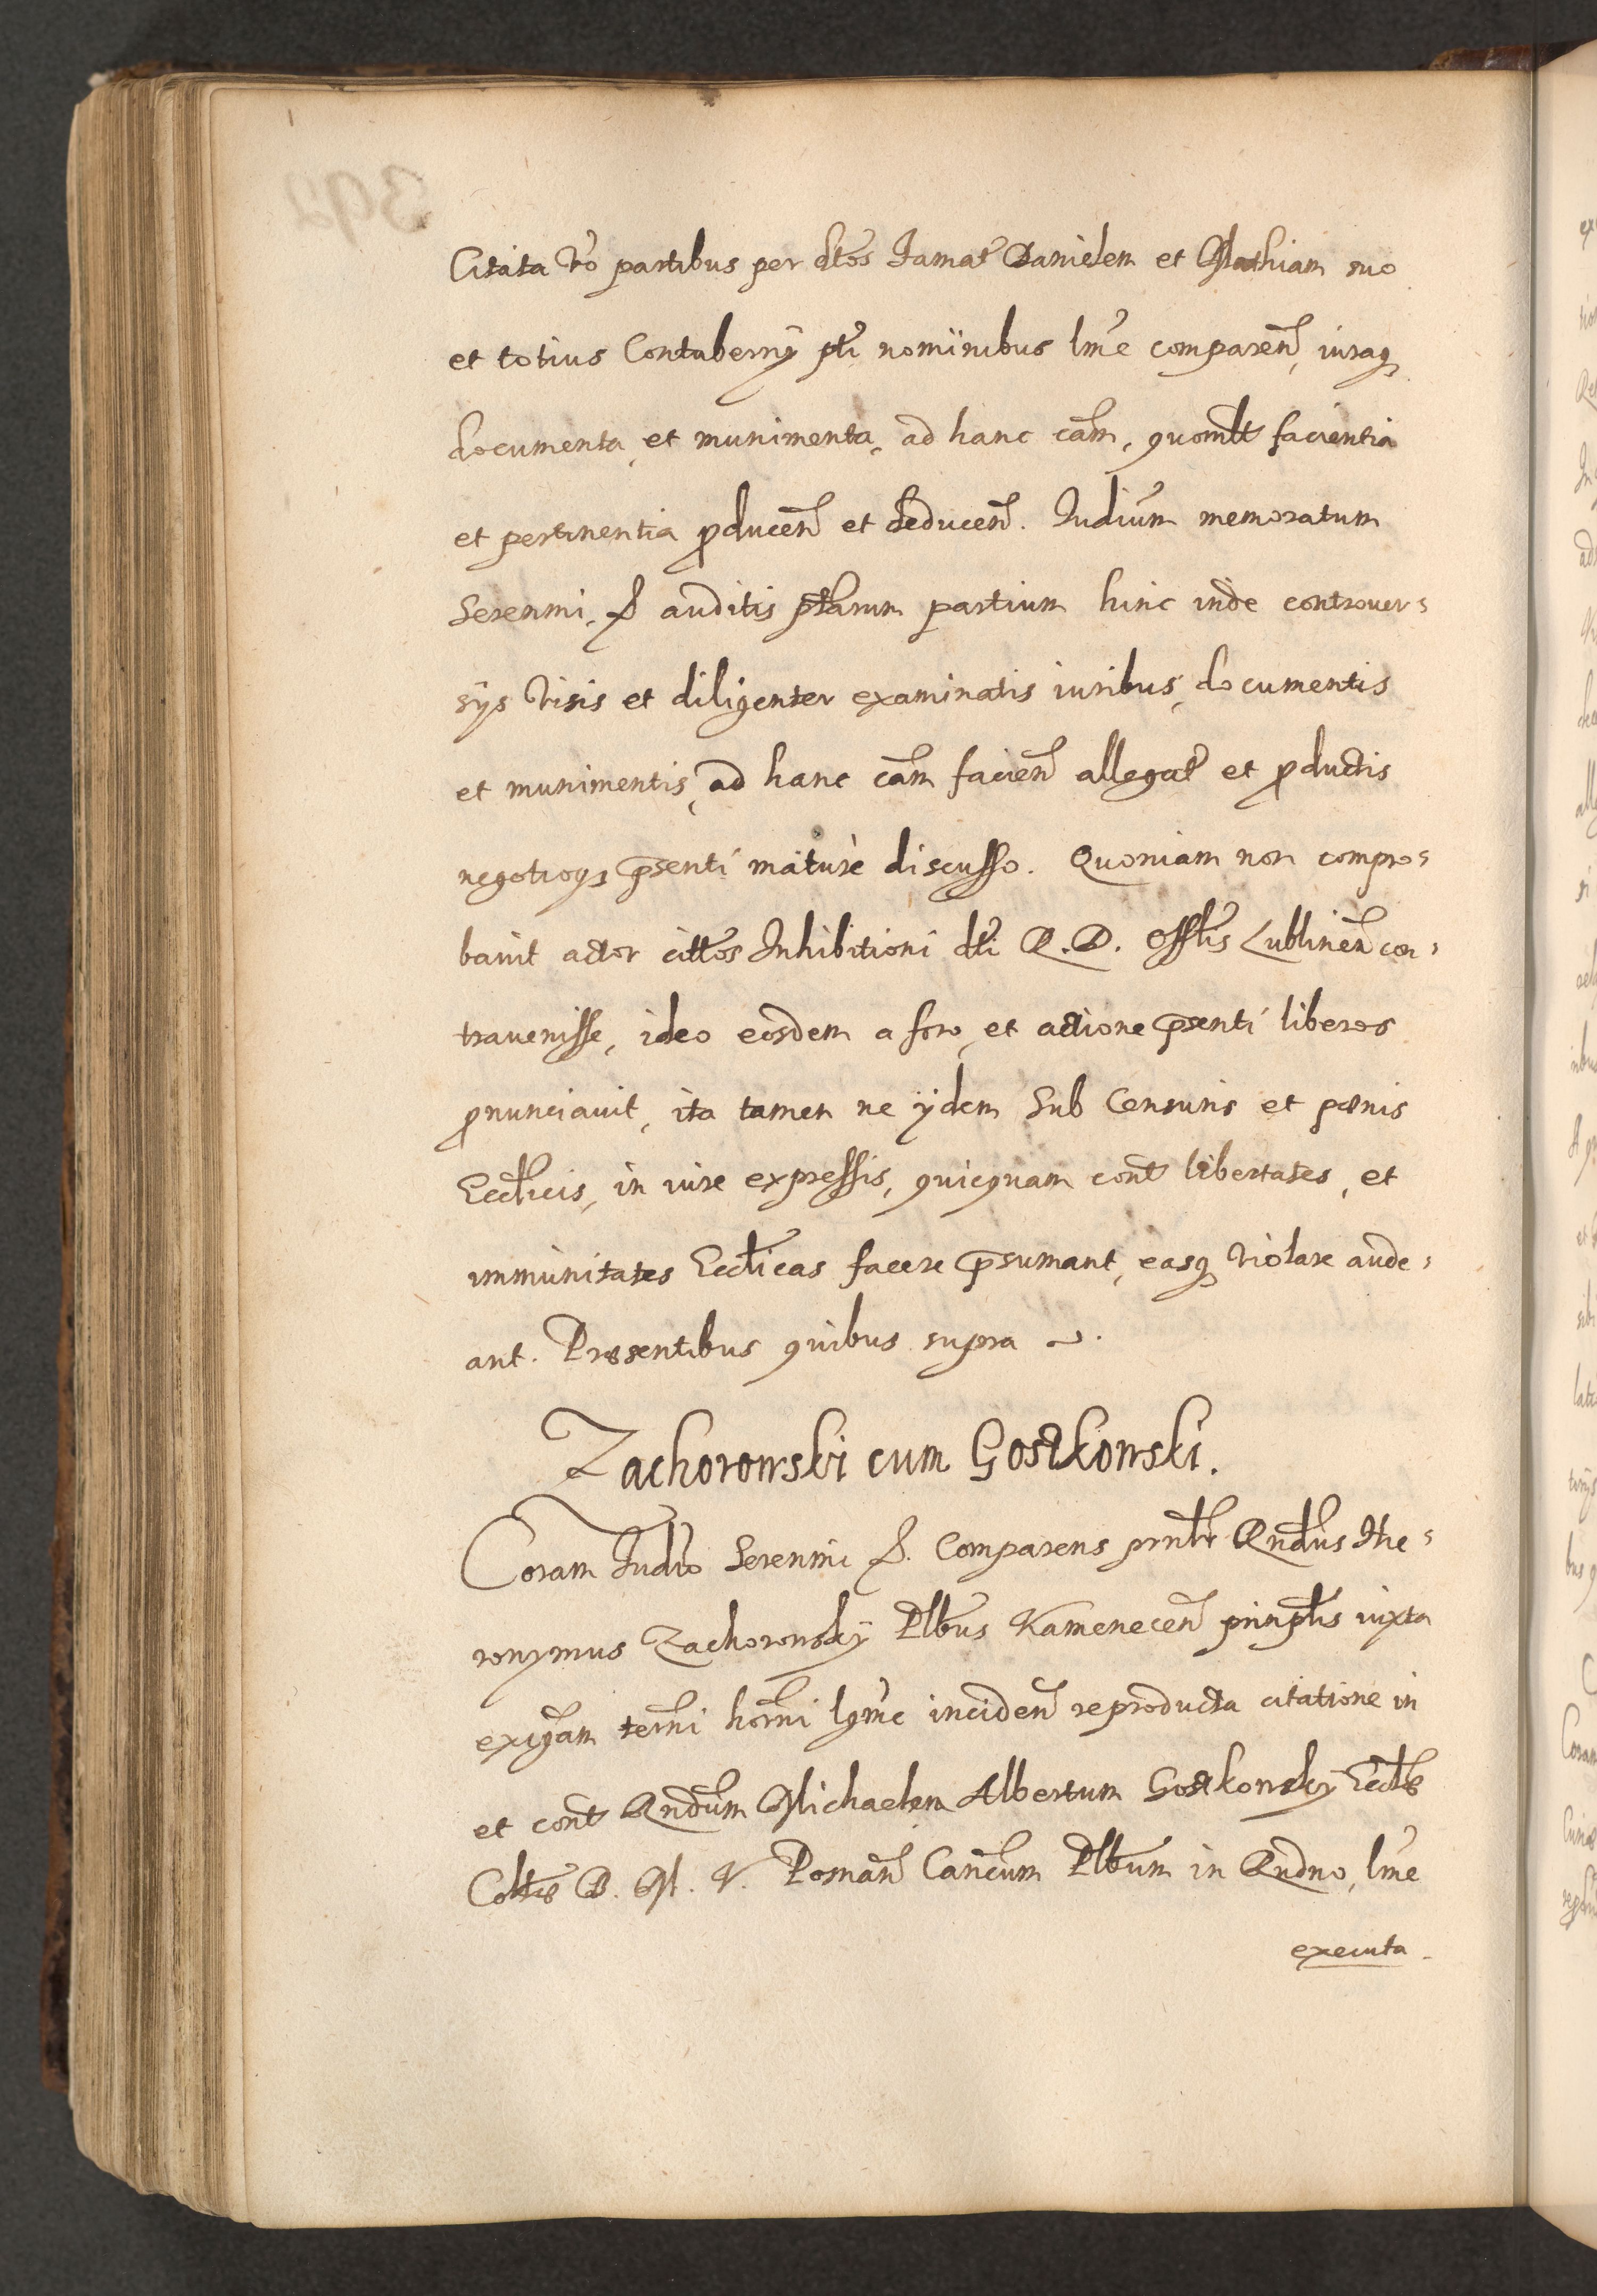 Citata vo partibus per dtos Famat Danielem et Mathiam suo
et totius Contubernÿ pti nominibus lme comparen, iuraq
documenta, et munimenta, ad hanc cam, quomlt facientia
et pertinentia producen et deducen. Iudium memoratum
Serenmi, & auditis ptarum partium hinc inde controuer=
sÿs visis et diligenter examinatis iuribus, documentis
et munimentis, ad hanc cam facien allegat et productis
negotioq3 psenti maturè discusso. Quoniam non compro=
bauit actor cittos Inhibitioni dti R. D. Offlis Lublinen con=
trauenisse, ideo eosdem a foro, et actione psenti liberos
pronunciauit, ita tamen ne ÿdem sub Censuris et pænis
Ecclicis, in iure expressis, quicquam cont libertates, et
immunitates Ecclicas facere psumant, easq violare aude=
ant. Præsentibus quibus supra.
Zachorowski cum Gostkowski.
Coram Iudio Serenmi &. Comparens prnlr Rndus Hie=
ronymus Zachorowskÿ Plbus Kamenecen prinplis iuxta
exigam termi horni lgme inciden reproducta citatione in
et cont Rndum Michaelem Albertum Gostkowskÿ Ecclæ
Coltæ B. M. V. Posnan Cancum Plbum in Rudno, lme
executa
392